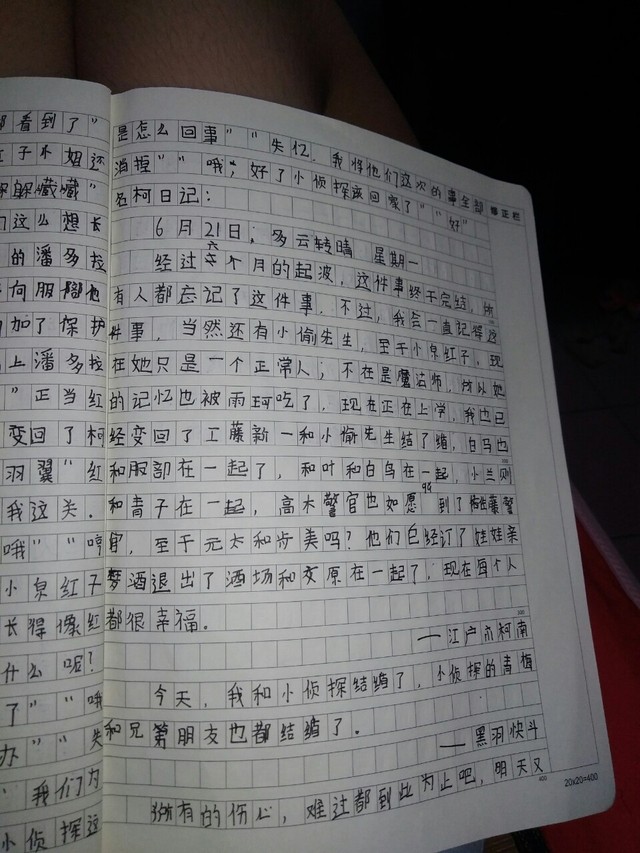 看到了”
红子小姐还
躲躲藏藏”
们这么想长
的潘多拉
向服部他
加了保护
上潘多拉
”正当红
变回了柯
羽翼”红
我这关.
哦”“哼
小泉红子
长得像红
什么呢?
了”“哦
办”“失
我们为
小侦探这
是怎么回事”“失忆.我将他们这次的事全部
消掉”“哦;好了小侦探该回家了”“好”
名柯日记:
6月21日;多云转晴 星期一
经过六个月的起波,这件事终于完结,所
有人都忘记了这件事.不过,我会一直记得这
件事,当然还有小偷先生,至于小泉红子.现
在她只是一个正常人;不在是魔法师,所以她
的记忆也被雨珂吃了,现在正在上学,我也已
经变回了工藤新一和小偷先生结了缗,白马也
和服部在一起了,和叶和白鸟在一起,小兰则
和青子在一起,高木警官也如愿的到了佐藤警
官,至于元太和步美吗?他们已经订了娃娃亲
梦酒退出了酒场和交原在一起了,现在每个人
都很幸福。
——江户川柯南
今天,我和小侦探结缗了,小侦探的青梅
和兄弟朋友也都结缗了。
——黑羽快斗
拥有的伤心,难过都到此为止吧,明天又
修正栏
20x20=400